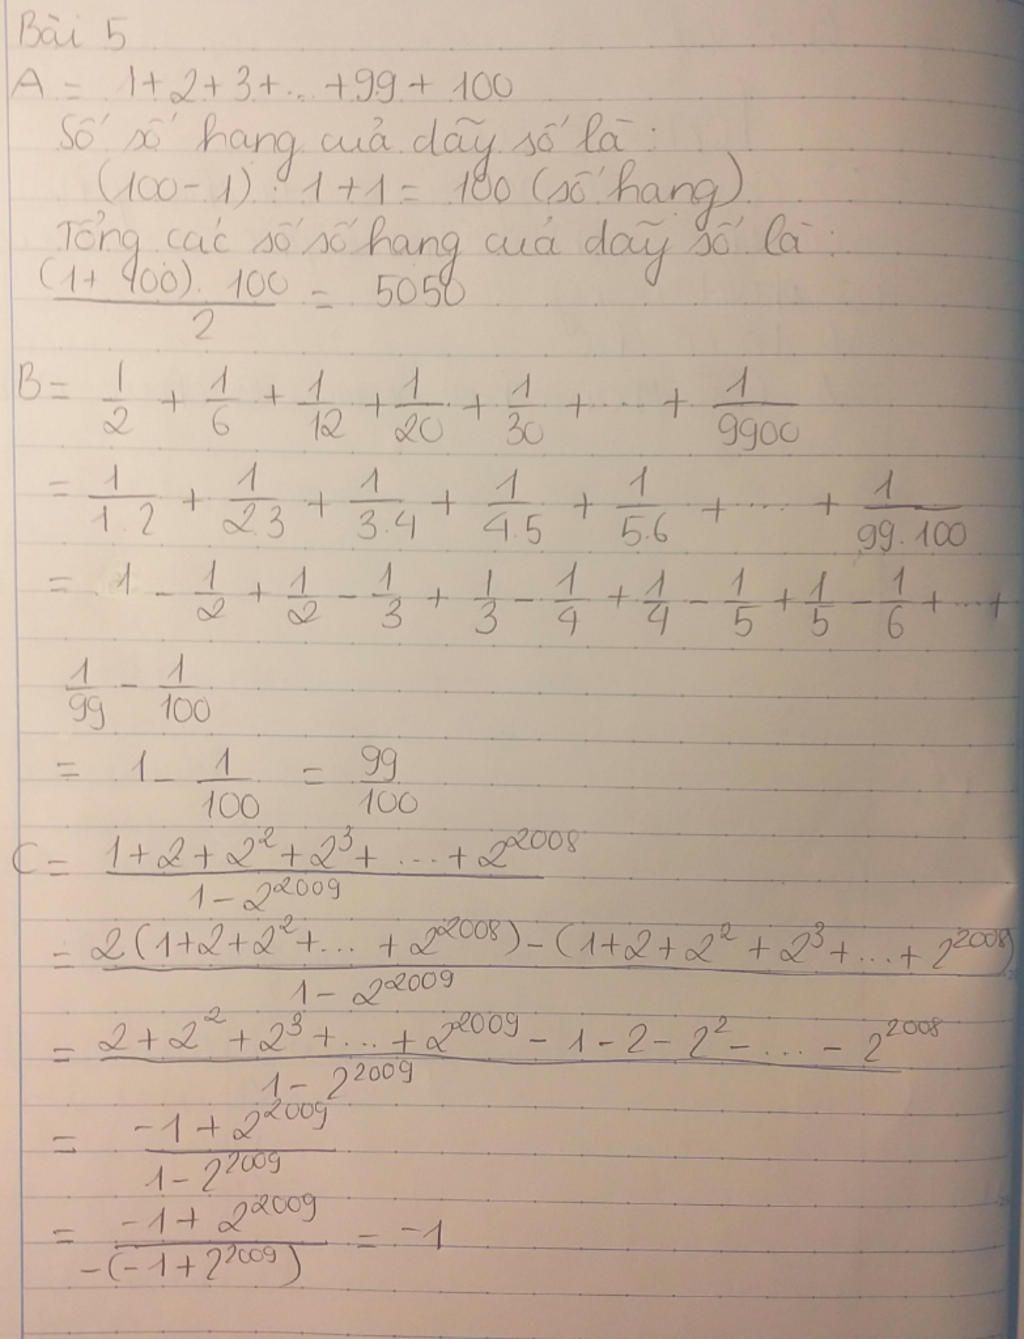 Bài 5
A = 1+2+3+...+99+100
Số số hang của dãy số là:
(100-1):1+1= 100 (số hang)
Tổng các số số hang của dãy số là:
(1+100).100/2 = 5050
B= 1/2 + 1/6 + 1/12 + 1/20 + 1/30 + ... + 1/9900
= 1/1.2 + 1/2.3 + 1/3.4 + 1/4.5 + 1/5.6 + ... + 1/99.100
= 1 - 1/2 + 1/2 - 1/3 + 1/3 - 1/4 + 1/4 - 1/5 + 1/5 - 1/6 + ... +
1/99 - 1/100
= 1 - 1/100 = 99/100
C= (1+2+2^2+2^3+...+2^2008)/(1-2^2009)
= (2(1+2+2^2+...+2^2008)-(1+2+2^2+2^3+...+2^2008))/(1-2^2009)
= (2+2^2+2^3+...+2^2009-1-2-2^2-...-2^2008)/(1-2^2009)
= (-1+2^2009)/(1-2^2009)
= (-1+2^2009)/(-(-1+2^2009)) = -1